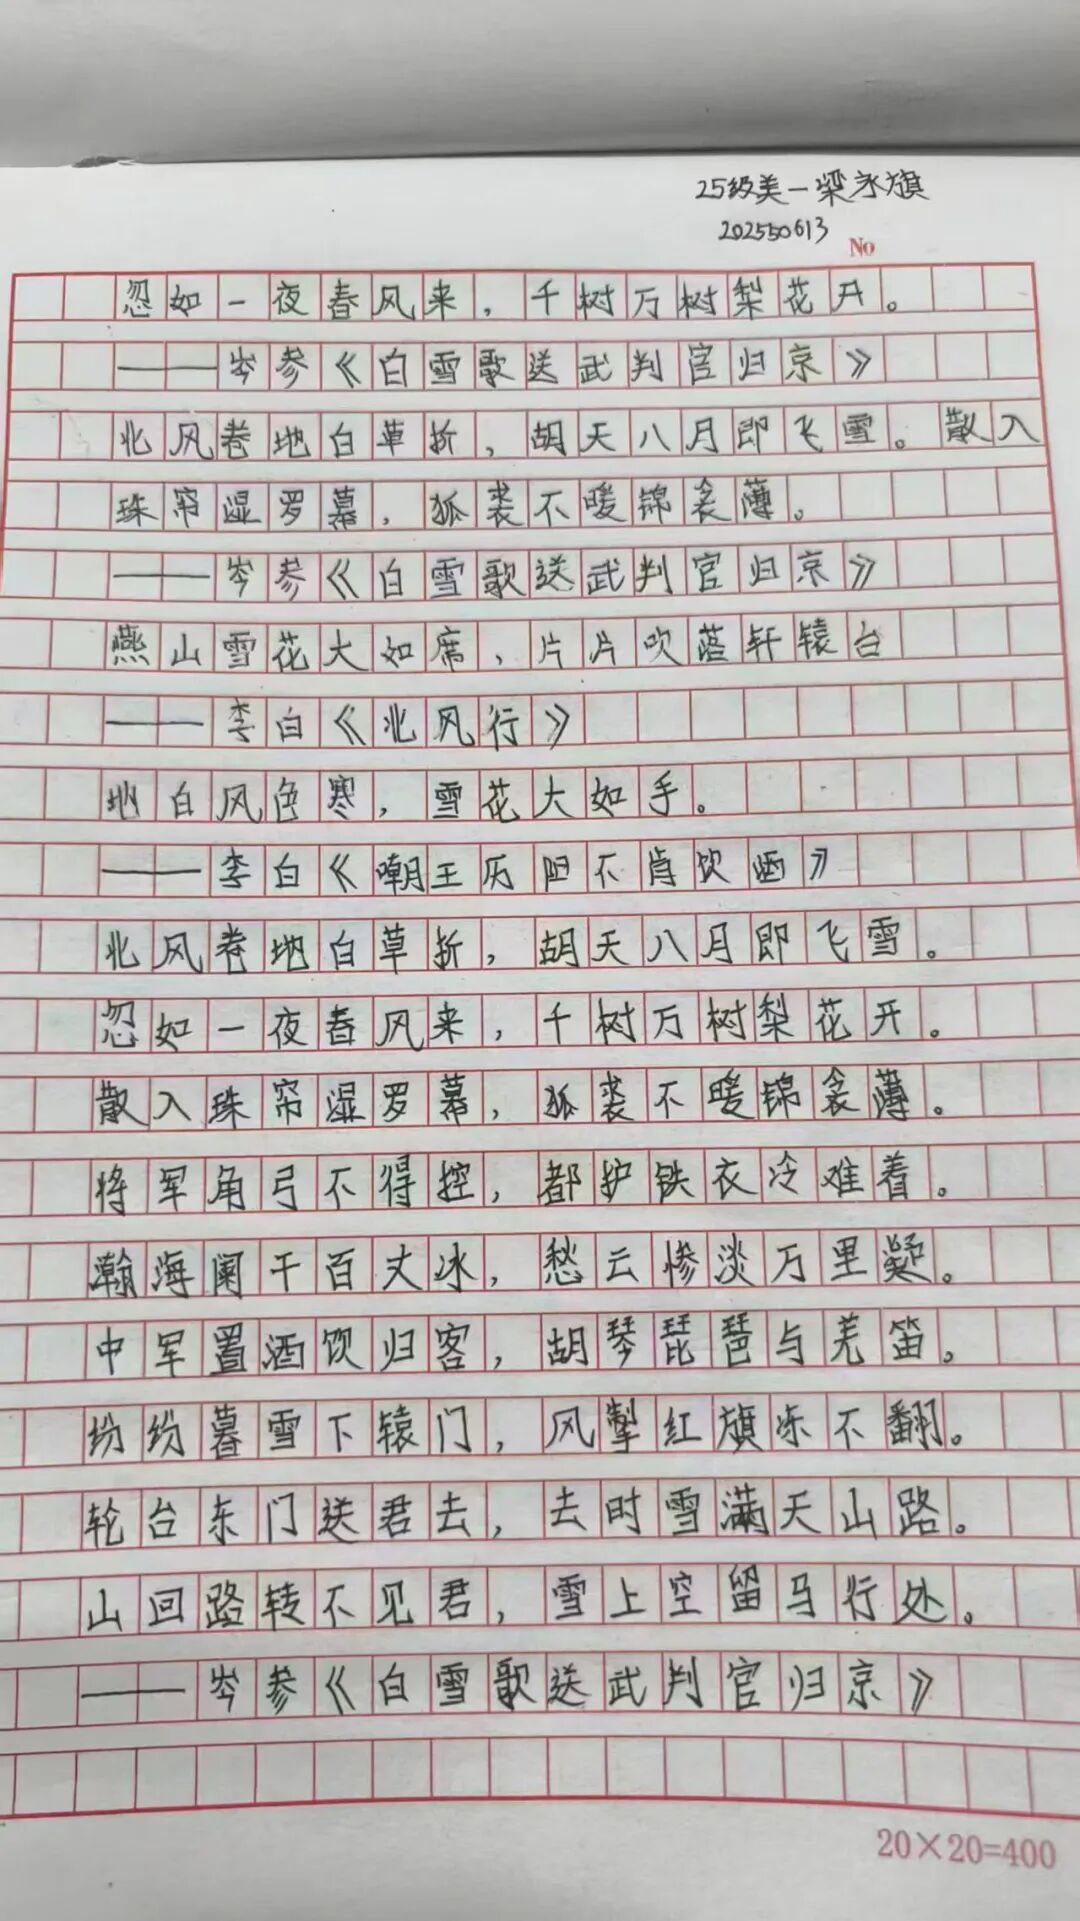 25级美一梁永旗
202550613
No
忽如一夜春风来，千树万树梨花开。
——岑参《白雪歌送武判官归京》
北风卷地白草折，胡天八月即飞雪。散入
珠帘湿罗幕，狐裘不暖锦衾薄。
——岑参《白雪歌送武判官归京》
燕山雪花大如席，片片吹落轩辕台
——李白《北风行》
地白风色寒，雪花大如手。
——李白《嘲王历阳不肯饮酒》
北风卷地白草折，胡天八月即飞雪。
忽如一夜春风来，千树万树梨花开。
散入珠帘湿罗幕，狐裘不暖锦衾薄。
将军角弓不得控，都护铁衣冷难着。
瀚海阑干百丈冰，愁云惨淡万里凝。
中军置酒饮归客，胡琴琵琶与羌笛。
纷纷暮雪下辕门，风掣红旗冻不翻。
轮台东门送君去，去时雪满天山路。
山回路转不见君，雪上空留马行处。
——岑参《白雪歌送武判官归京》
20×20=400